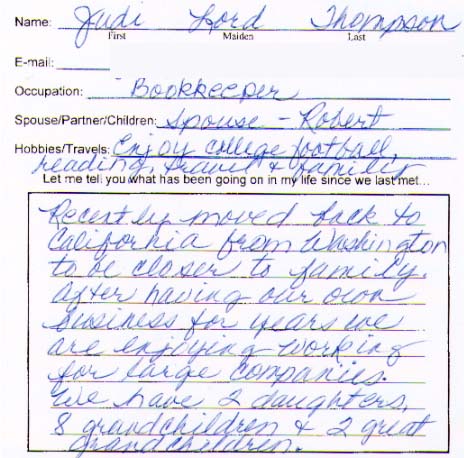 Name: Judi Lord Thompson
First Maiden Last
E-mail:
Occupation: Bookkeeper
Spouse/Partner/Children: Spouse - Robert
Hobbies/Travels: Enjoy college football,
reading travel & family
Let me tell you what has been going on in my life since we last met...
Recently moved back to
California from Washington
to be closer to family.
After having our own
business for years we
are enjoying working
for large companies.
We have 2 daughters,
8 grandchildren & 2 great
grandchildren.